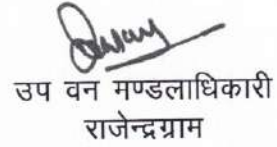 उप वन मण्डलाधिकारी
राजेन्द्रग्राम